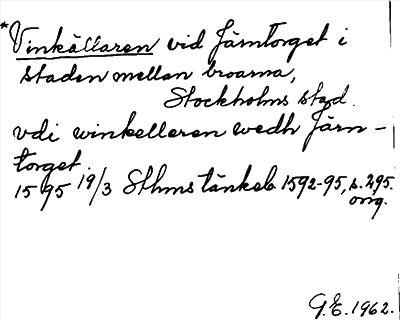 *Vinkällaren vid Järntorget i
staden mellan broarna,
Stockholms stad.
vdi winkelleren wedh Järn-
torget.
1595 19/3 Sthms tänkeb. 1592-95, s. 295.
orig.
G.E. 1962.